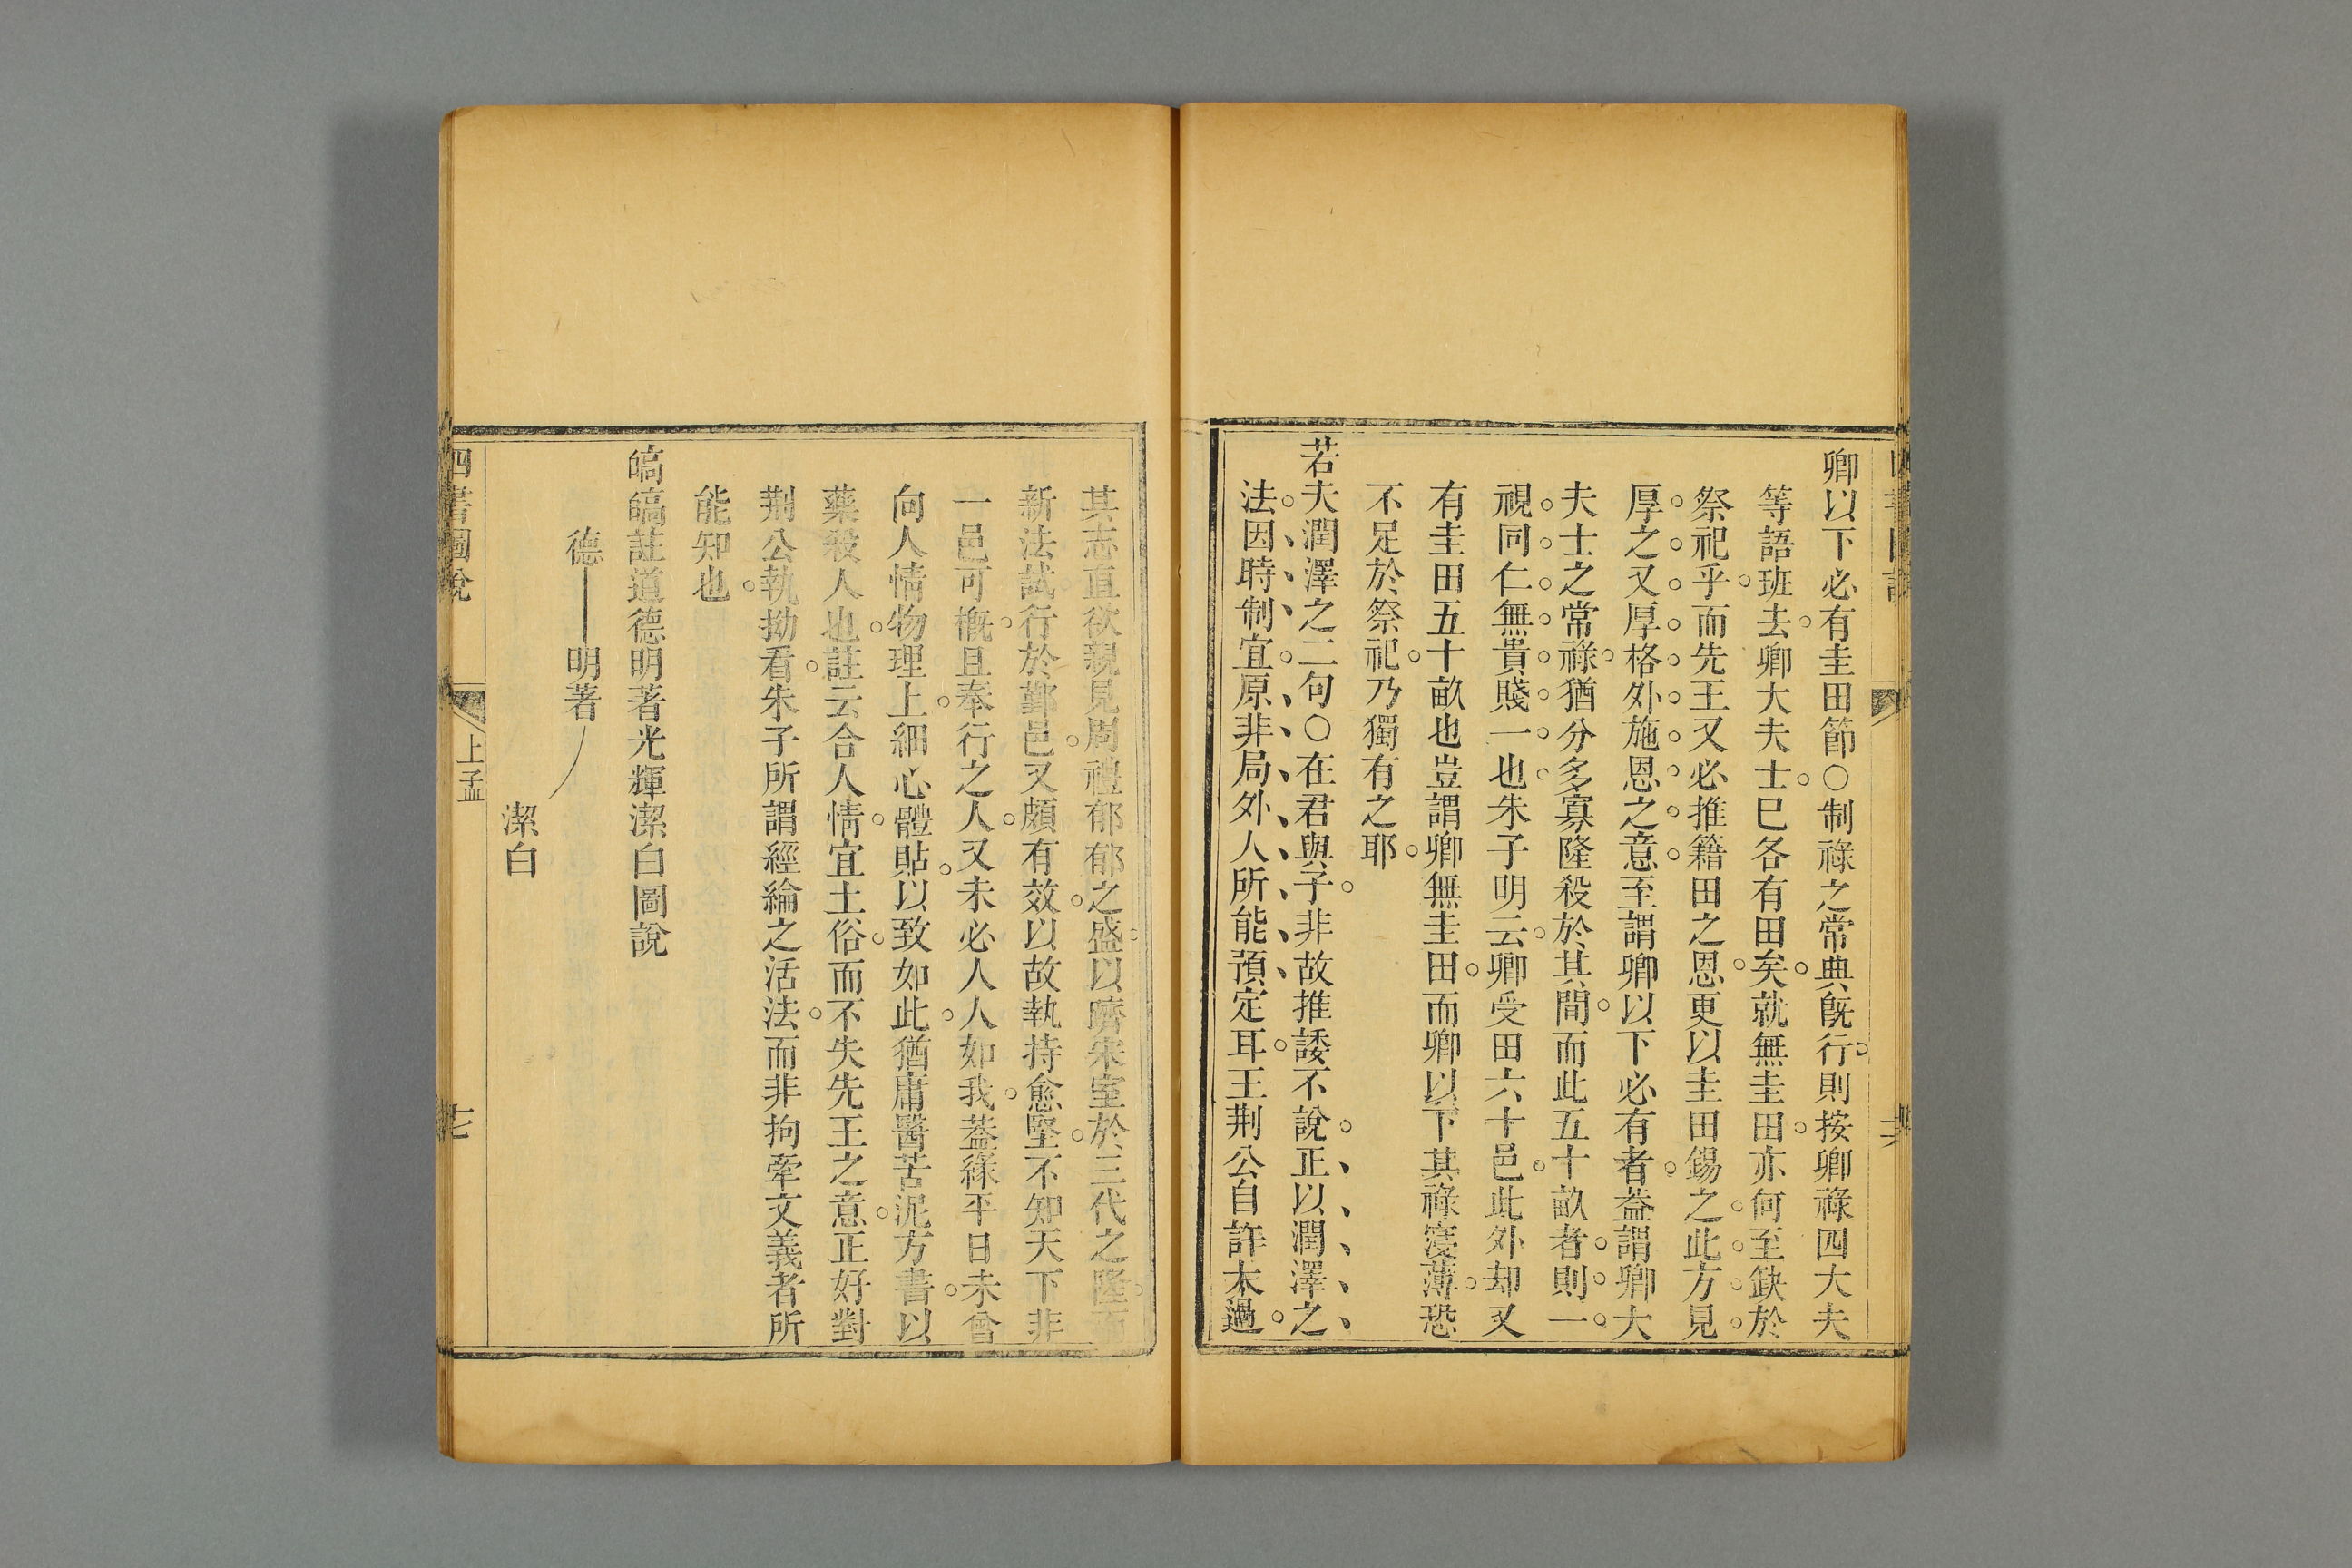 卿以下必有圭田節○制祿之常典旣行則按卿祿四大夫
等語班去卿大夫士巳各有田矣就無圭田亦何至缺於
祭祀乎而先王又必推籍田之恩更以圭田錫之此方見
厚之又厚格外施恩之意至謂卿以下必有者葢謂卿大
夫士之常祿猶分多寡隆殺於其間而此五十畝者則一
視同仁無貴賤一也朱子明云卿受田六十邑此外却又
有圭田五十畝也豈謂卿無圭田而卿以下其祿寖薄恐
不足於祭祀乃獨有之耶
若夫潤澤之二句○在君與子非故推諉不說正以潤澤之
法因時制宜原非局外人所能預定耳王荆公自許太過
其志直欲親見周禮郁郁之盛以躋宋室於三代之隆而
新法試行於鄞邑又頗有效以故執持愈堅不知天下非
一邑可概且奉行之人又未必人人如我葢緣平日未曾
向人情物理上細心體貼以致如此猶庸醫苦泥方書以
藥殺人也註云合人情宜土俗而不失先王之意正好對
荆公執拗看朱子所謂經綸之活法而非拘牽文義者所
能知也
皜皜註道德明著光輝潔白圖說
德 明著
潔白
四書圖說 上孟 十七